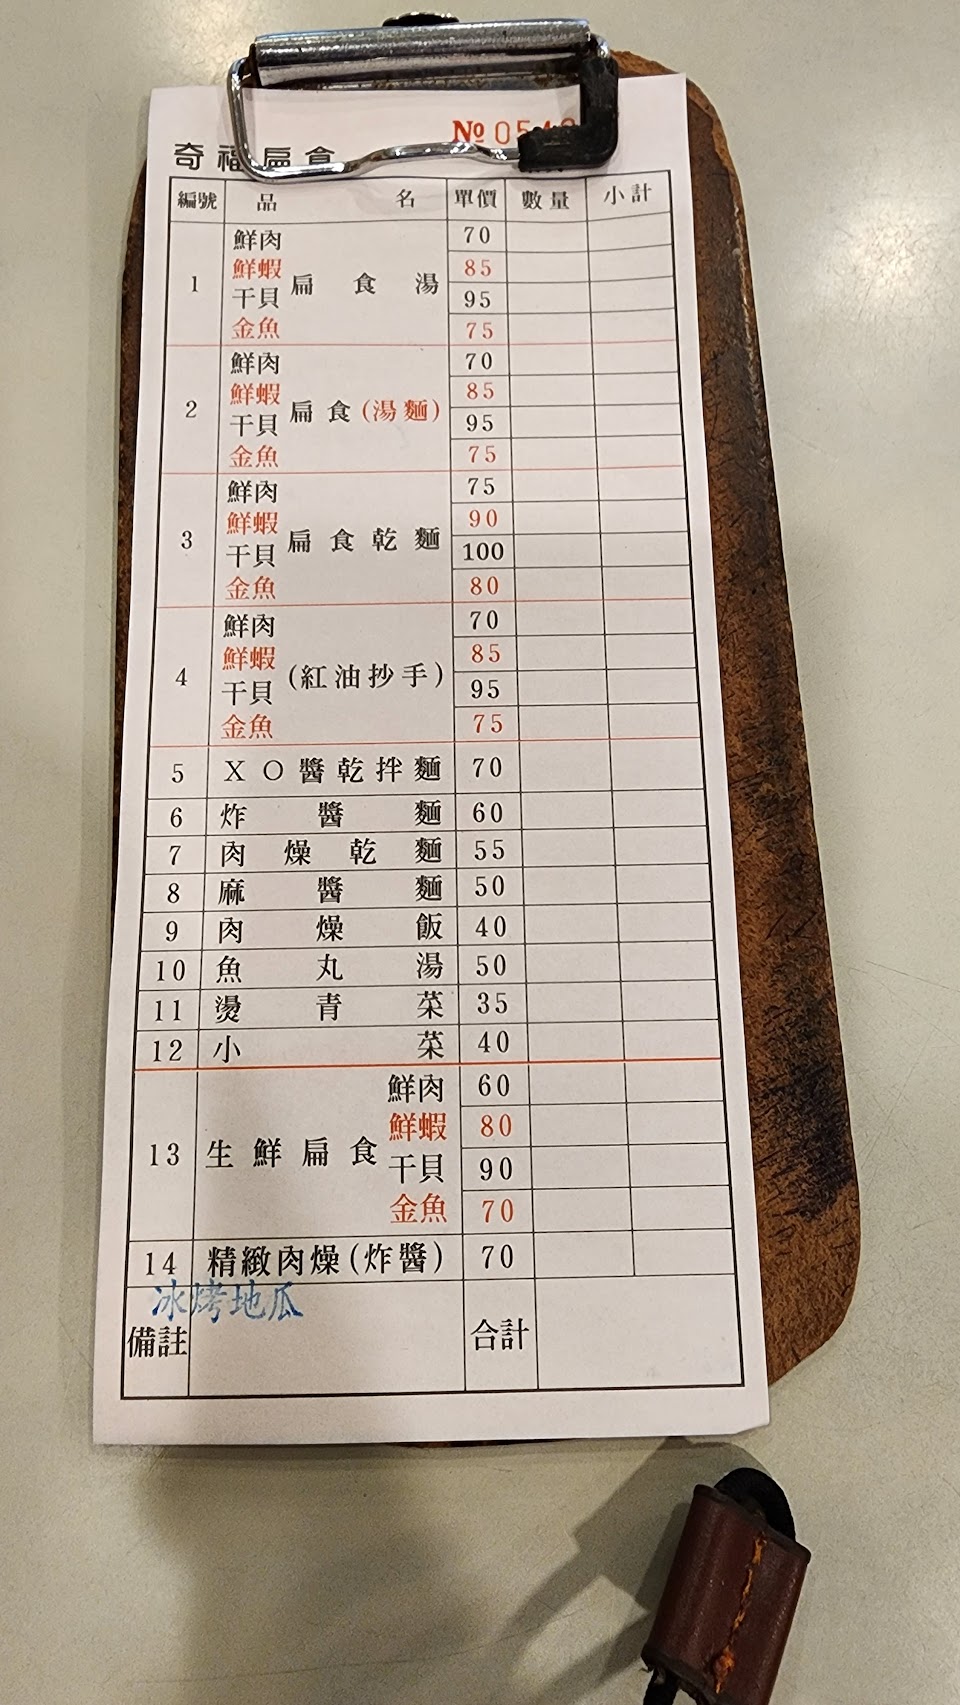 № 05
奇福扁食
編號 品名 單價 數量 小計
1 扁食湯
鮮肉 70
鮮蝦 85
干貝 95
金魚 75
2 扁食(湯麵)
鮮肉 70
鮮蝦 85
干貝 95
金魚 75
3 扁食乾麵
鮮肉 75
鮮蝦 90
干貝 100
金魚 80
4 (紅油抄手)
鮮肉 70
鮮蝦 85
干貝 95
金魚 75
5 XO醬乾拌麵 70
6 炸醬麵 60
7 肉燥乾麵 55
8 麻醬麵 50
9 肉燥飯 40
10 魚丸湯 50
11 燙青菜 35
12 小菜 40
13 生鮮扁食
鮮肉 60
鮮蝦 80
干貝 90
金魚 70
14 精緻肉燥(炸醬) 70
冰烤地瓜
備註 合計